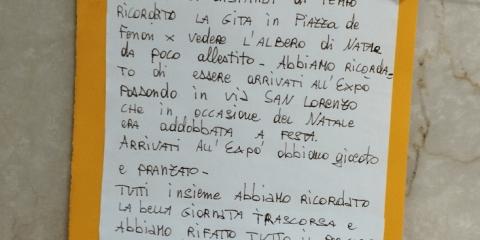 DISTANZA DI TEMPO
RICORDATO LA GITA in PIAZZA de
FERRARI X vedere L'ALBERO di NATALE
DA POCO allestito - ABBIAMO RICORDA-
TO di ESSERE ARRIVATI ALL'EXPO
PASSANDO in VIA SAN LORENZO
CHE in OCCASIONE del NATALE
ERA ADDOBBATA A FESTA.
ARRIVATI ALL'EXPO' abbiamo giocato
e PRANZATO -
TUTTI insieme ABBIAMO RICORDATO
LA bella GIORNATA TRASCORSA e
ABBIAMO RIFATTO TUTTO il